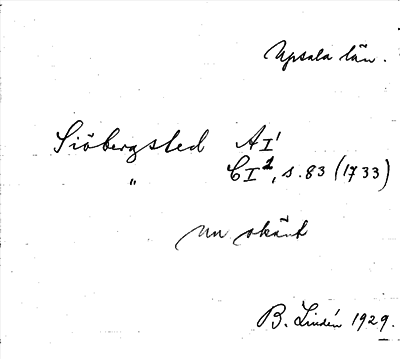 Upsala län.
Siöbergsted AI¹
" CI², s. 83 (1733)
nu okänt
B. Lindén 1929.